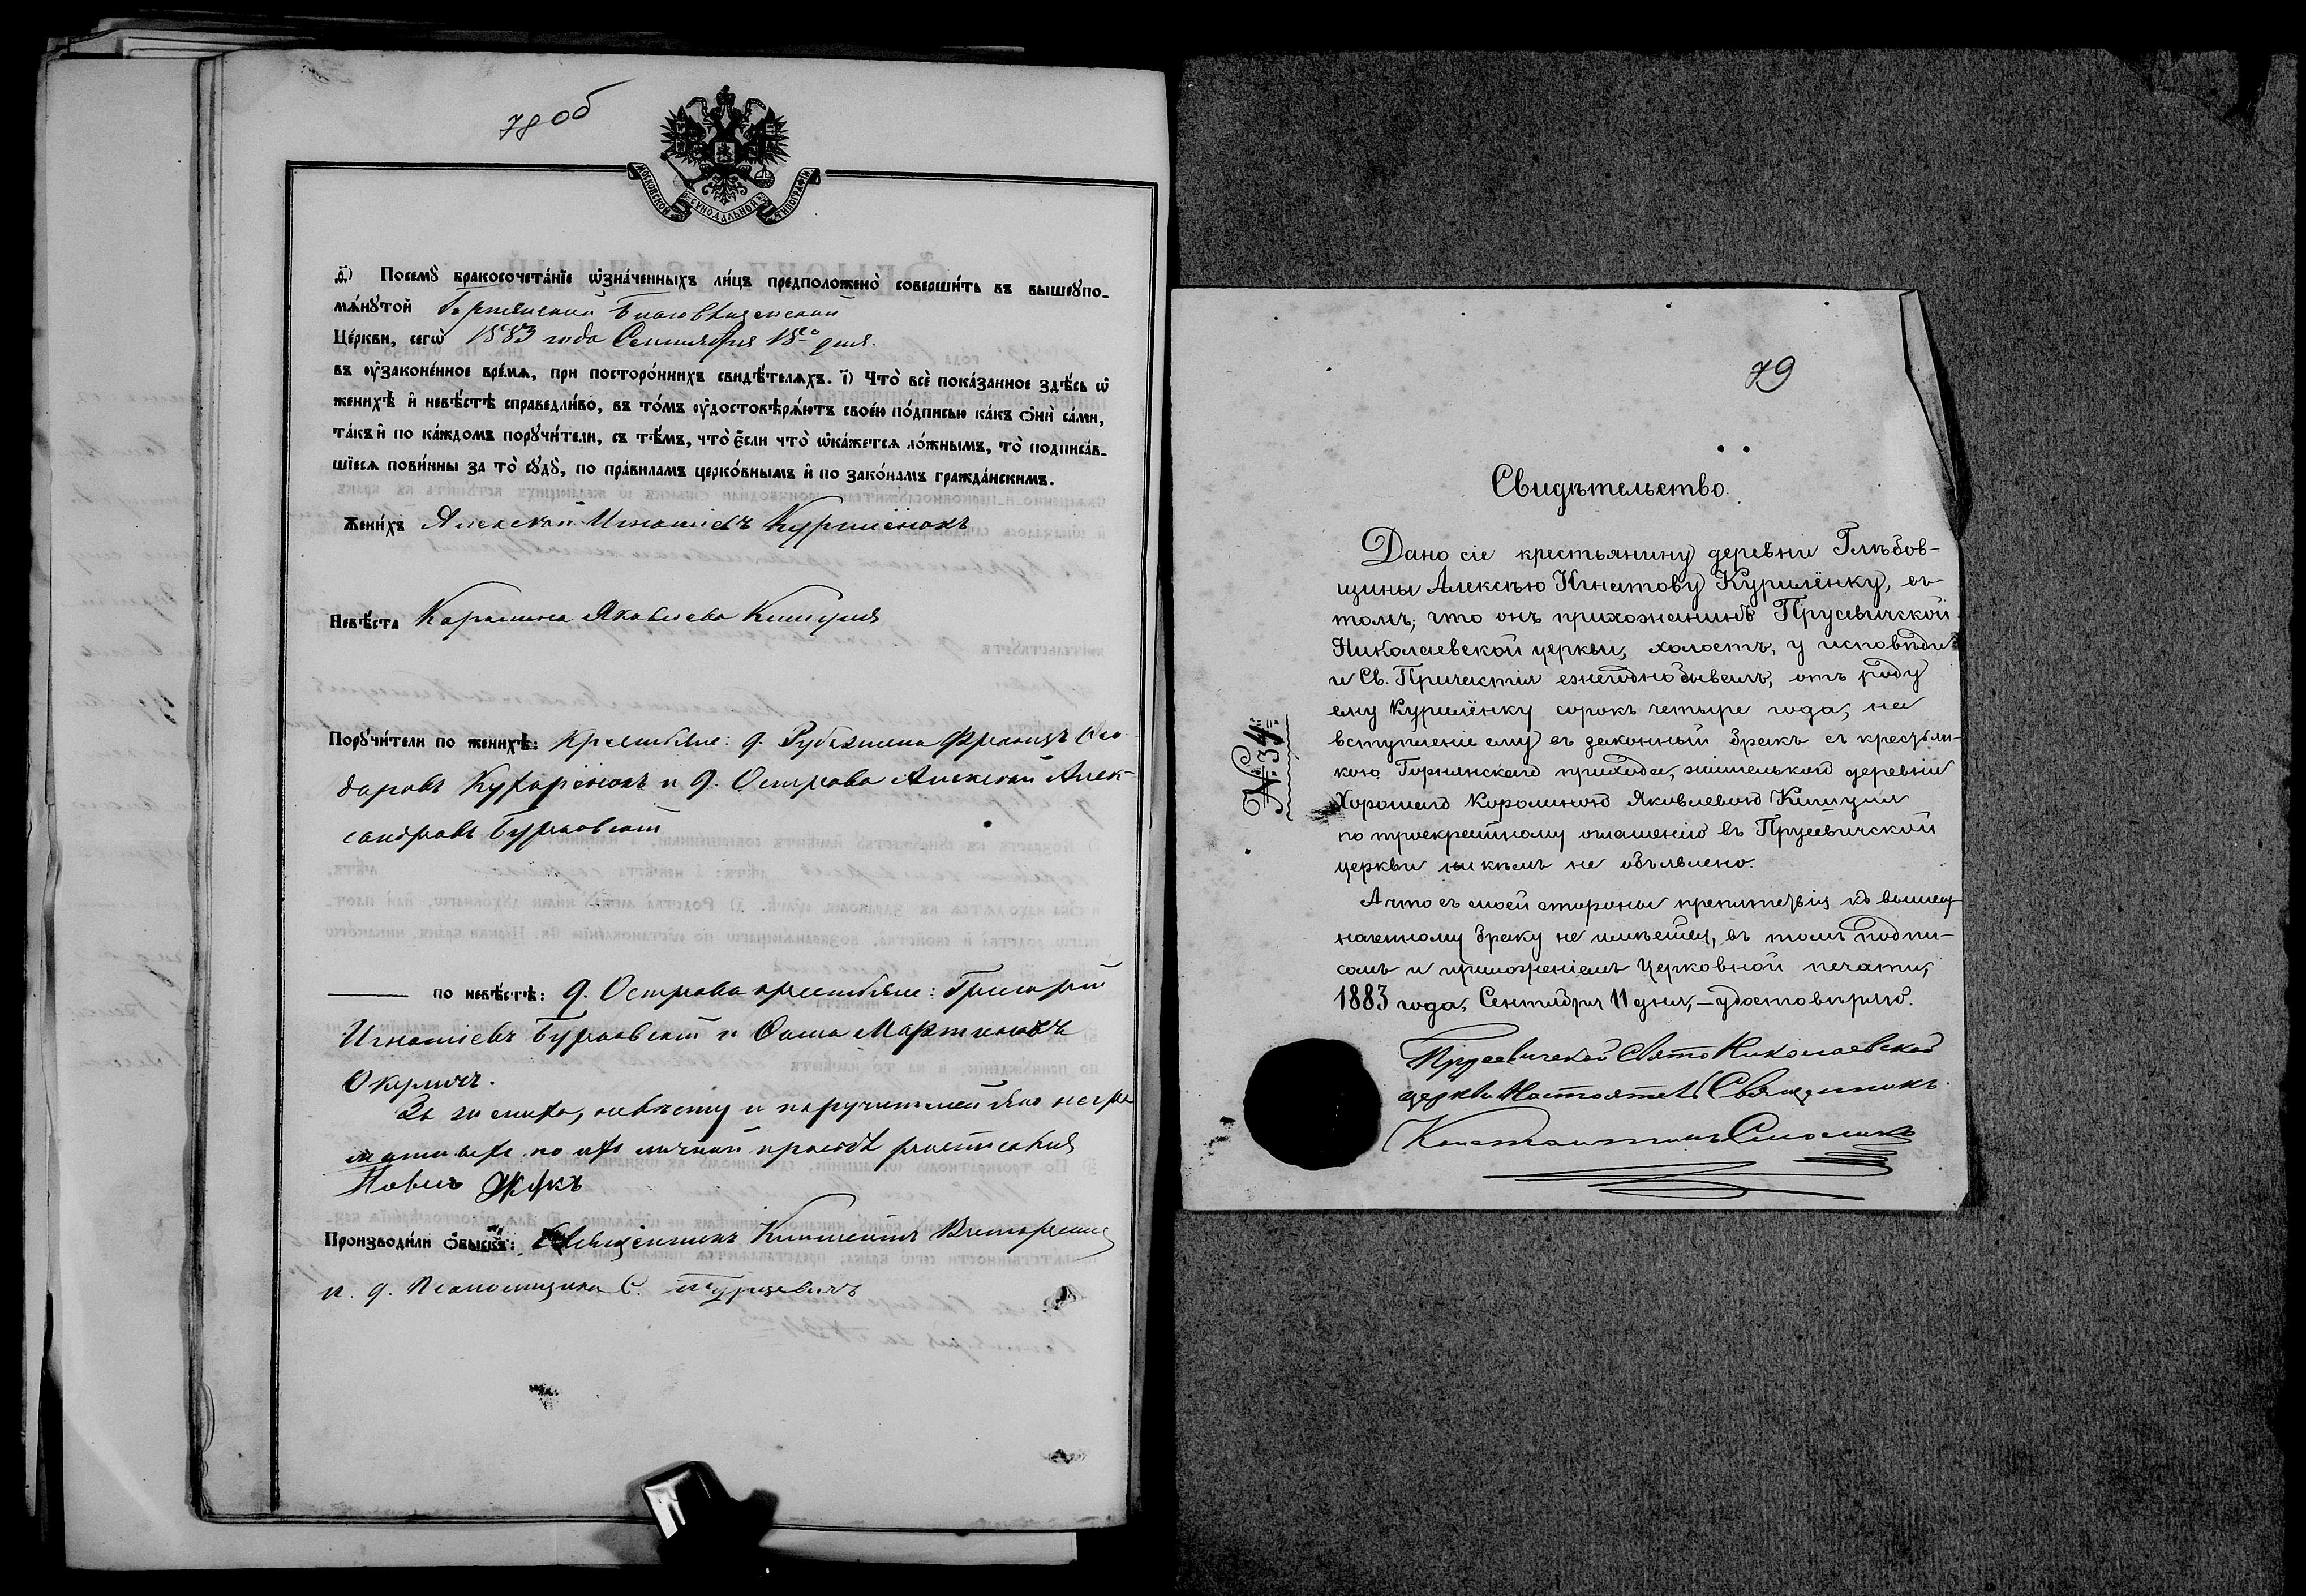 78 об
МОСКОВСКОЙ СѴНОДАЛЬНОЙ ТИПОГРАФІИ
д҃і) Посемꙋ̀ бракосочета́нїе ѡ҆зна́ченныхъ ли́цъ предположено̀ соверши́ть въ вышеꙋпо-
мѧ́нꙋтой Горнянской Благовѣщенской
Це́ркви, сегѡ̀ 1883 года Сентября 18го дня.
въ ᲂу҆законе́нное вре́мѧ, при посторо́ннихъ свидѣ́телѧхъ. і҃) Что̀ всѐ пока́занное здѣ́сь ѡ҆
женихѣ̀ и҆ невѣ́стѣ справедли́во, въ то́мъ ᲂу҆достовѣрѧ́ютъ свое́ю по́дписью ка́къ ѻ҆нѝ са́ми,
та́къ и҆ по ка́ждомъ порꙋчи́тели, съ тѣ́мъ, что̀ є҆́сли что̀ ѡ҆ка́жетсѧ ло́жнымъ, то̀ подписа́в-
шїесѧ пови́нны за то̀ сꙋдꙋ̀, по пра́виламъ церко́внымъ и҆ по зако́намъ гражда́нскимъ.
Жени́хъ Алексѣй Игнатіевъ Курилёнокъ
Невѣ́ста Каролина Яковлева Кишуля
Порꙋчи́тели по женихѣ̀: Крестьяне: д. Францъ Ѳео-
доровъ Кухарёнокъ и д. Острова Алексѣй Алек-
сандровъ Бурковскій
по невѣ́стѣ: д. Острова крестьяне: Григорій
Игнатіевъ Бурковскій и Ѳома Мартиновъ
За жениха, невѣсту и поручителей по негра
мотству ихъ по ихъ личной просьбѣ расписался
Павелъ Жукъ
Производи́ли ѻ҆́быскъ: Священникъ Климентъ
и. д. Псаломщика С. Турцевичъ
79
Свидѣтельство.
Дано сіе крестьянину деревни Глѣбов-
щины Алексѣю Игнатову Курилёнку, въ
томъ, что онъ прихожанинъ Прусевичской
Николаевской церкви, холостъ, у исповѣди
и Св. Причастія ежегодно бывалъ, отъ роду
ему Курилёнку сорокъ четыре года, на
вступленіе ему въ законный бракъ съ крестьян-
кою Горнянскаго прихода, жителькой деревни
Хорошаго Каролиною Яковлевою Кишуля
по троекратному оглашенію въ Прусевичской
церкви ни кѣмъ не объявлено.
А что съ моей стороны препятствія къ вышеоз-
наченному браку не имѣется, въ томъ подпи-
сомъ и приложеніемъ Церковной печати,
1883 года, Сентября 11 дня,—удостовѣряю.
Прусевичской Свято Николаевской
церкви Настоятель Священникъ
Константинъ Смоличъ
№ 34.